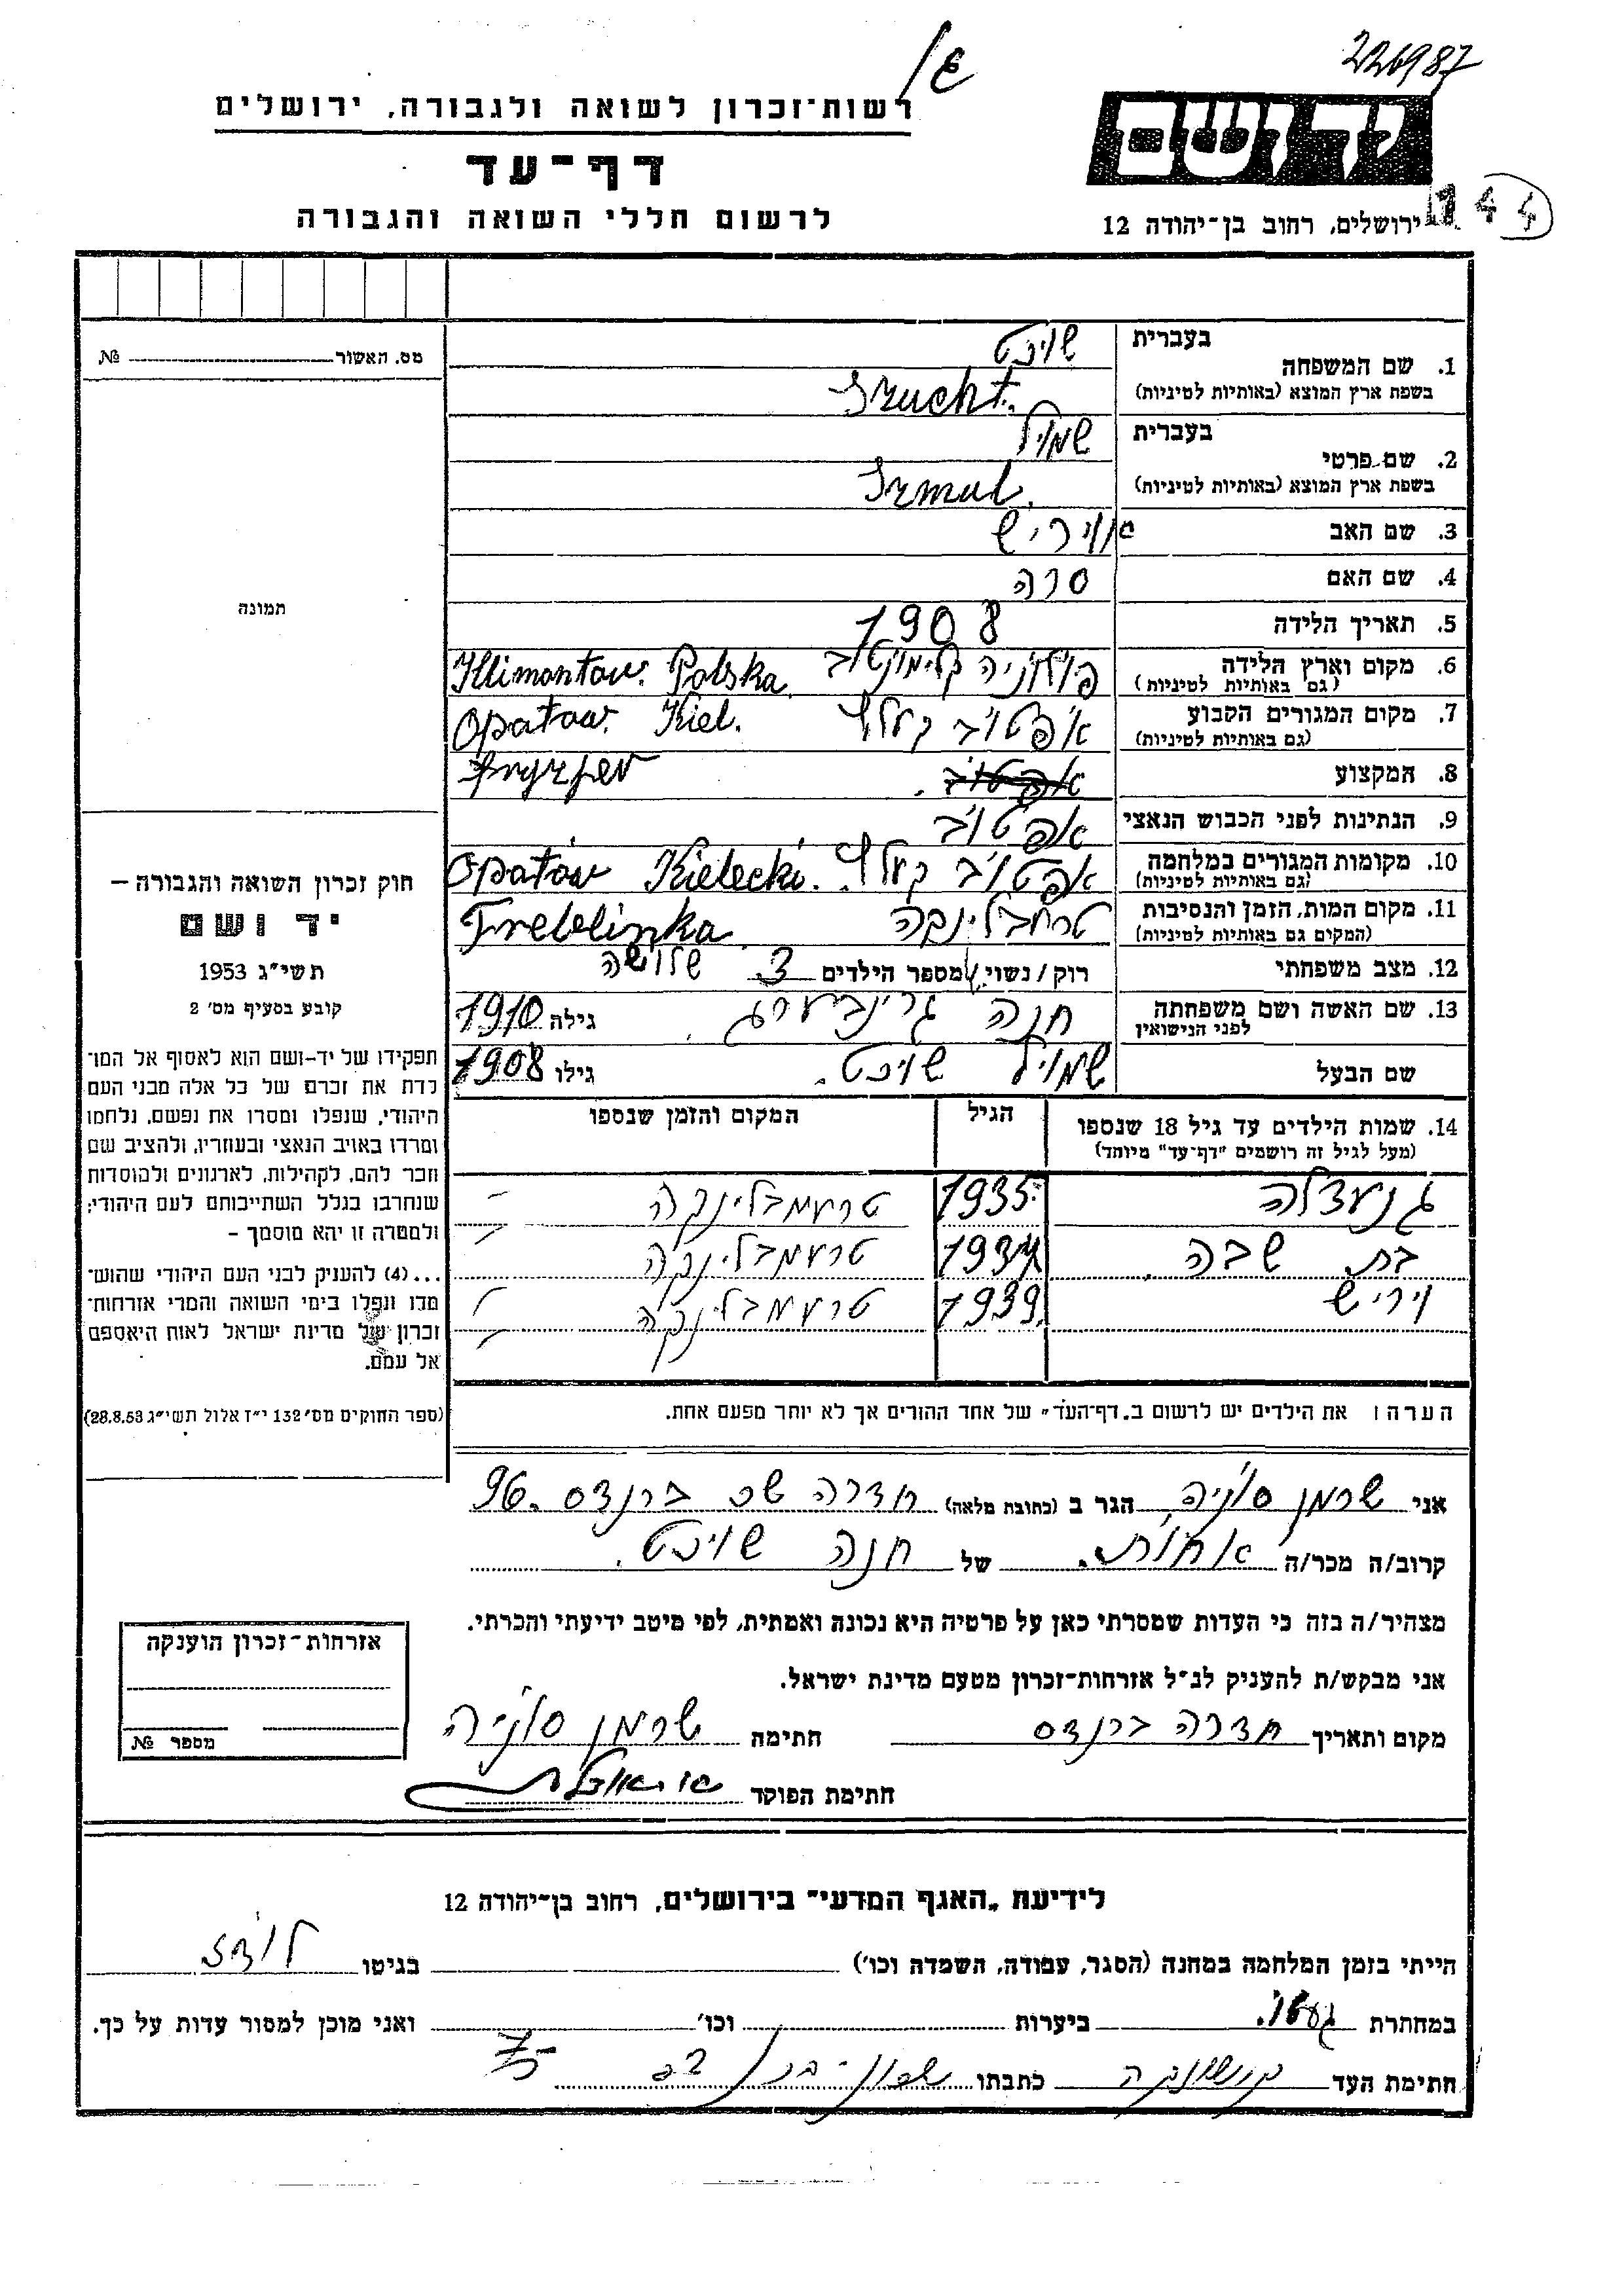 226987
רשות־זכרון לשואה ולגבורה, ירושלים
דף־עד
לרשום חללי השואה והגבורה
יד ושם
ירושלים, רחוב בן־יהודה 12
144
מס. האשור № 
תמונה
חוק זכרון השואה והגבורה —
יד ושם
תשי"ג 1953
קובע בסעיף מס' 2
תפקידו של יד-ושם הוא לאסוף אל המו־
לדת את זכרם של כל אלה מבני העם
היהודי, שנפלו ומסרו את נפשם, נלחמו
ומרדו באויב הנאצי ובעוזריו, ולהציב שם
וזכר להם, לקהילות, לארגונים ולמוסדות
שנחרבו בגלל השתייכותם לעם היהודי;
ולמטרה זו יהא מוסמך —
...(4) להעניק לבני העם היהודי שהוש־
מדו ונפלו בימי השואה והמרי אזרחות־
זכרון של מדינת ישראל לאות היאספם
אל עמם.
(ספר החוקים מס' 132 י"ז אלול תשי"ג 28.8.53)
1. שם המשפחה
בעברית שויכט
בשפת ארץ המוצא (באותיות לטיניות) Szucht.
2. שם פרטי
בעברית שמויל
בשפת ארץ המוצא (באותיות לטיניות) Szmul.
3. שם האב
4. שם האם סרה
5. תאריך הלידה 1908
6. מקום וארץ הלידה (גם באותיות לטיניות) פולניה קלימונטוב Klimontow. Polska.
7. מקום המגורים הקבוע (גם באותיות לטיניות) אפטוב קעלץ Opatow. Kiel.
8. המקצוע אפטוב. fryzjer
9. הנתינות לפני הכבוש הנאצי אפטוב
10. מקומות המגורים במלחמה (גם באותיות לטיניות) אפטוב קעלץ. Opatów Kielecki.
11. מקום המות, הזמן והנסיבות (המקום גם באותיות לטיניות) Treblinka
12. מצב משפחתי רוק / נשוי / מספר הילדים 3. שלושה
13. שם האשה ושם משפחתה לפני הנישואין חנה גרינבערג. גילה 1910
שם הבעל שמויל שויכט. גילו 1908
14. שמות הילדים עד גיל 18 שנספו
(מעל לגיל זה רושמים "דף־עד" מיוחד)
הגיל
המקום והזמן שנספו
גנעצלה 1935 טרעמבלינקה
בת שבה טרעמבלינקה
ויריש 1939 טרעמבלינקה
הערה: את הילדים יש לרשום ב„דף־העד" של אחד ההורים אך לא יותר מפעם אחת.
אני שרמן סוניה הגר ב (כתובת מלאה) חדרה שכ ברנדס 96.
קרוב/ה מכר/ה אחות. של חנה שויכט.
מצהיר/ה בזה כי העדות שמסרתי כאן על פרטיה היא נכונה ואמתית, לפי מיטב ידיעתי והכרתי.
אני מבקש/ת להעניק לנ"ל אזרחות־זכרון מטעם מדינת ישראל.
מקום ותאריך חדרה ברנדס חתימה שרמן סוניה
חתימת הפוקד
אזרחות־זכרון הוענקה
מספר №
לידיעת „האגף המדעי" בירושלים, רחוב בן־יהודה 12
הייתי בזמן המלחמה במחנה (הסגר, עבודה, השמדה וכו') בגיטו לודז
במחתרת ביערות וכו' ואני מוכן למסור עדות על כך.
חתימת העד כתבתו